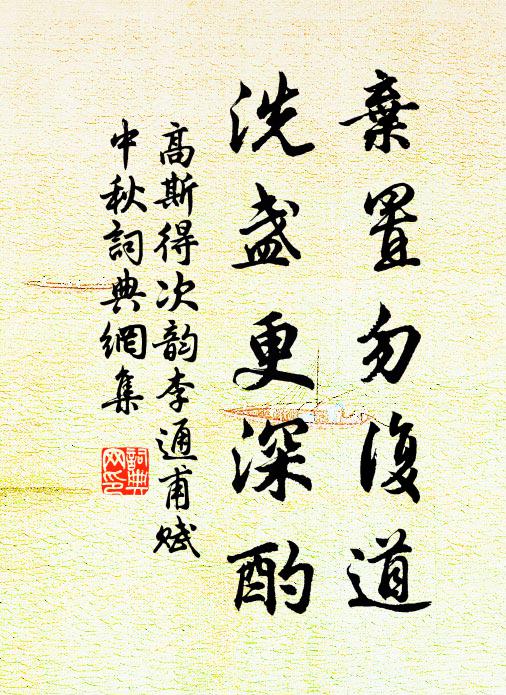 棄置勿復道
洗盞更深酌
高斯得次韵李通甫賦
中秋詞典網集
詞典
网印